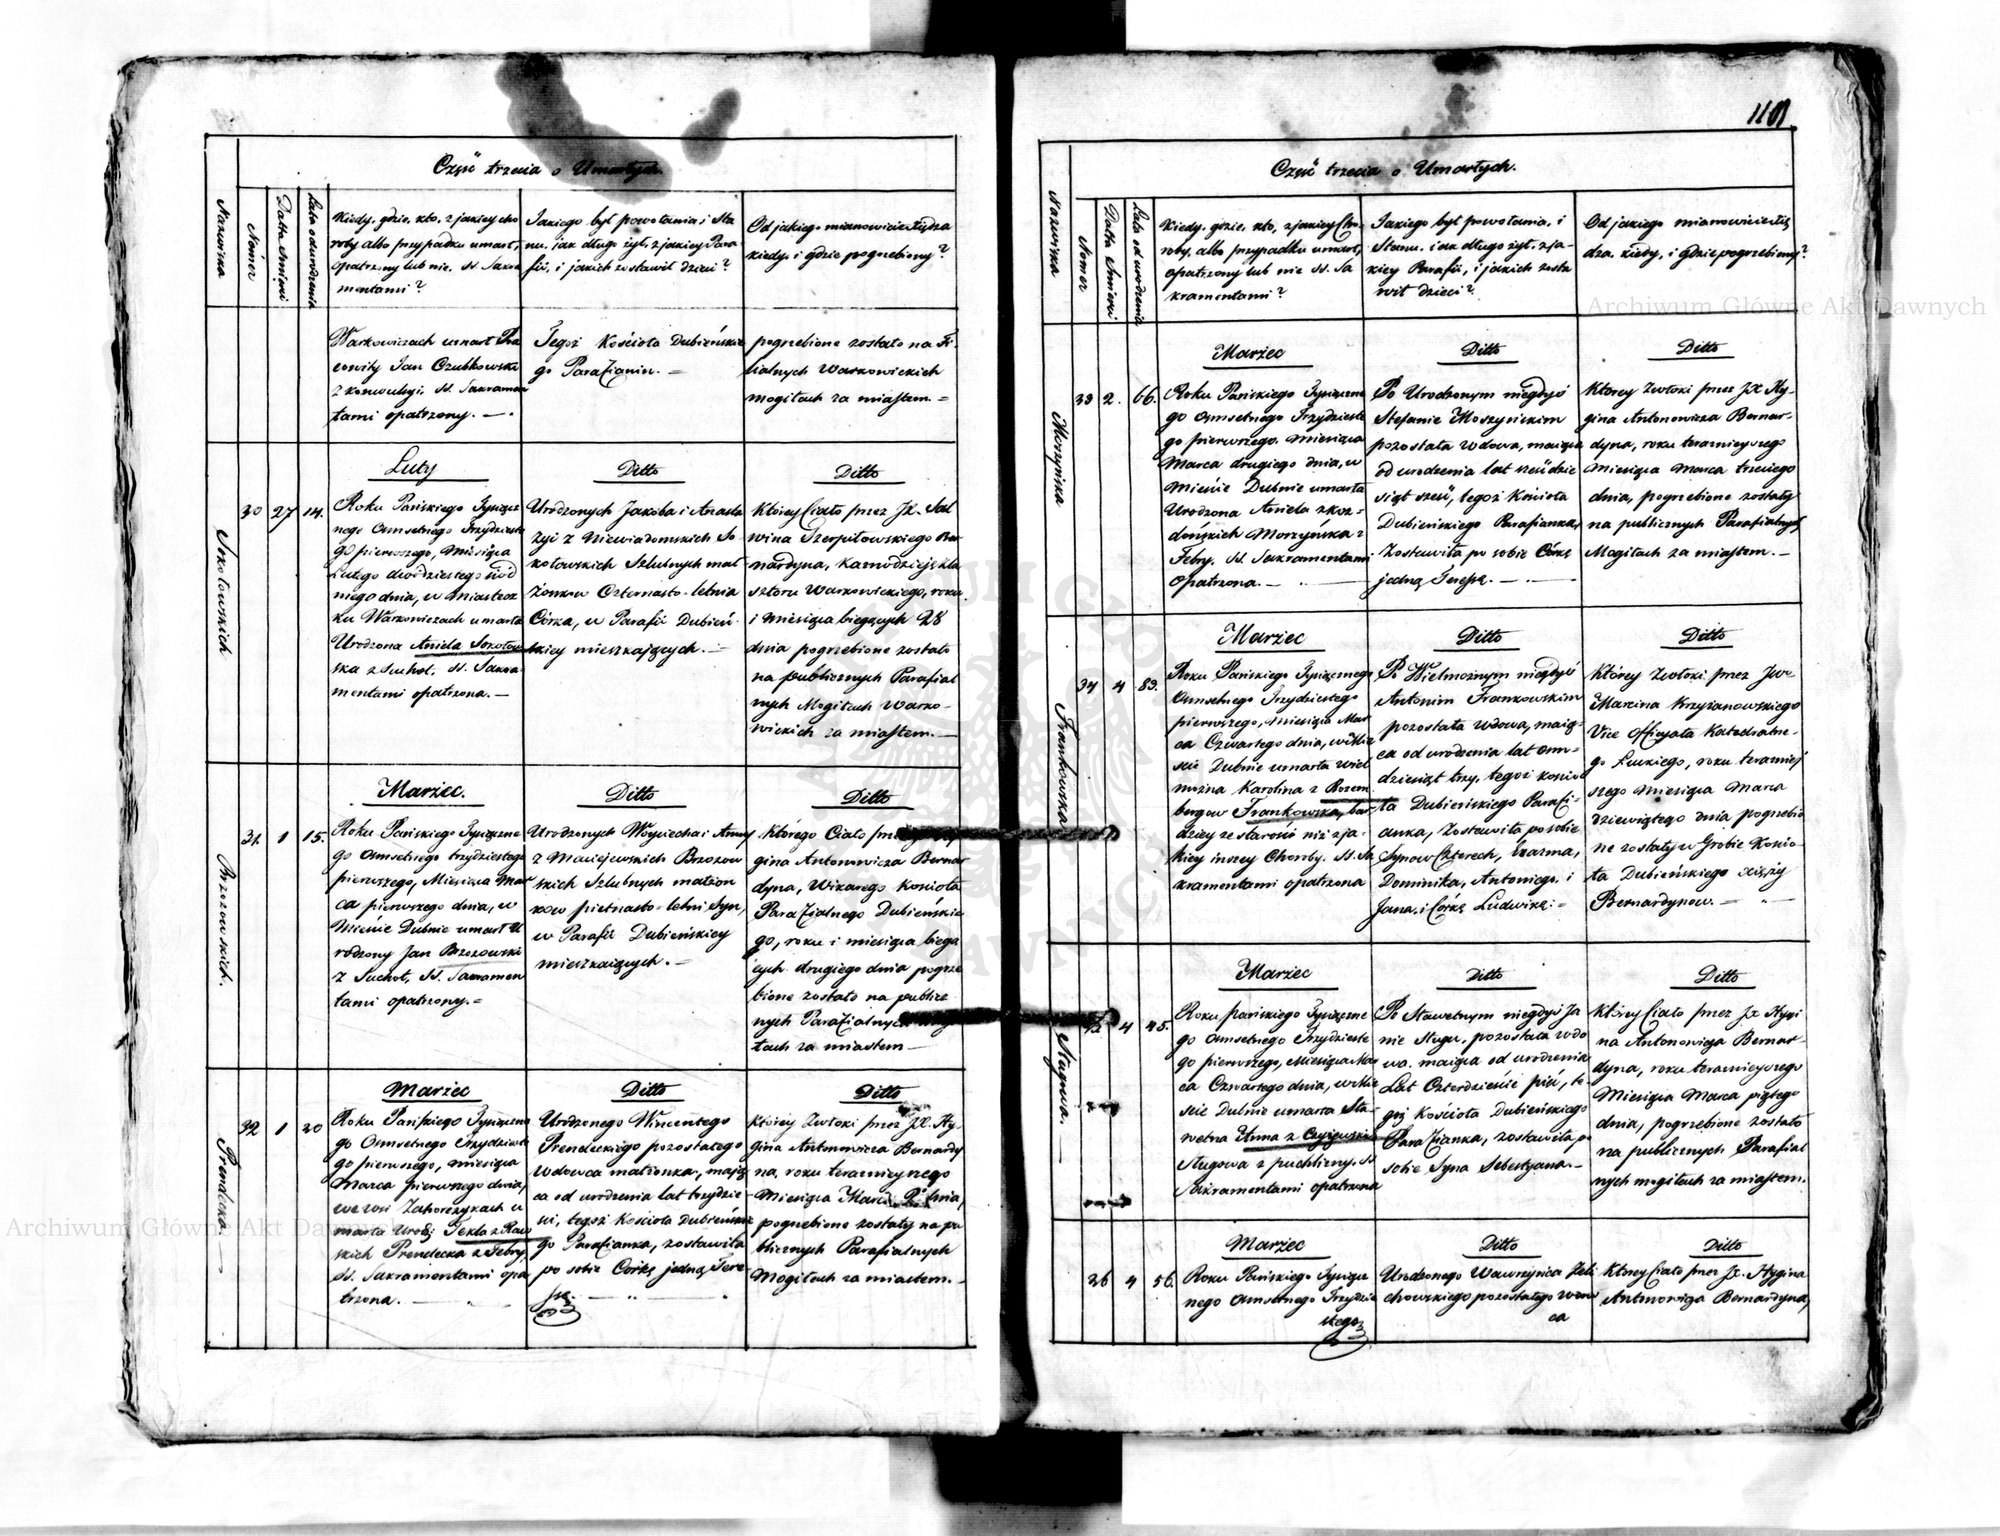 Część trzecia o Umarłych.
Nazwiska
Numer
Datta Smierci
Lata od urodzenia
Kiedy, gdzie, kto, z jakiey cho
roby albo przypadku umarł,
opatrzony lub nie, SS. Sakra
mentami?
Jakiego był powołania, i Sta
nu, jak długo żył, z jakiey Para
fii, i jakich zostawił dzieci?
Od jakiego mianowicie Xiędza
kiedy, i gdzie pogrzebiony?
Warkowiczach umarł Pra
cowity Jan Czubkowski
z konwulsyi, SS. Sakramen
tami opatrzony. —
Tegoż Kościoła Dubieńskie
go Parafianin. =
pogrzebione zostało na Fi
lialnych Warkowickich
mogiłach za miastem. =
Sokołowskich
30 27 14.
Luty
Roku Pańskiego Tysiącz
nego Ośmsetnego Trzydzieste
go pierwszego, Miesiąca
Lutego dwódziestego siód
mego dnia, w Miastecz
ku Warkowiczach umarła
Urodzona Aniela Sokołow
ska z Suchot, SS. Sakra
mentami opatrzona. —
Ditto
Urodzonych Jakóba i Anasta
zyi z Niewiadomskich So
kołowskich Szlubnych mał
żonków Czternasto-letnia
Córka, w Parafii Dubień
skiey mieszkających. —
Ditto
Którey Ciało przez JX. Sal
wina Szerpiłowskiego Ber
nardyna, Kaznodzieję Kla
sztoru Warkowickiego, roku
i Miesiąca bieżących 28
dnia pogrzebione zostało
na publicznych Parafial
nych Mogiłach Warko-
wickich za miastem. —
Brzozowskich.
31. 1 15.
Marzec.
Roku Pańskiego Tysiączne
go Ośmsetnego trzydziestego
pierwszego, Miesiąca Mar
ca pierwszego dnia, w
Mieście Dubnie umarł U
rodzony Jan Brzozowski
z Suchot, SS. Sakramen
tami opatrzony. =
Ditto
Urodzonych Woyciecha i Anny
z Maciejewskich Brzozow
skich Szlubnych małżon
ków pietnasto-letni Syn,
w Parafii Dubieńskiey
mieszkaiących. —
Ditto
Którego Ciało przez
gina Antonowicza Bernar
dyna, Wikarego Kościoła
Parafialnego Dubieńskie
go, roku i miesiąca bieżą
cych drugiego dnia pogrze
bione zostało na public
nych Parafialnych
łach za miastem —
Prendecka —
32 1 30
Marzec
Roku Pańskiego Tysiączne
go Ośmsetnego Trzydzieste
go pierwszego, miesiąca
Marca pierwszego dnia,
we wsi Zahorczykach u
marła Urodz: Tekla z Raw
skich Prendecka z Febry,
SS. Sakramentami opa
trzona. —
Ditto
Urodzonego Wincentego
Prendeckiego pozostałego
Wdowca małżonka, maią
ca od urodzenia lat trzydzie
ści, tegoż Kościoła Dubieńskie
go Parafianka, zostawiła
po sobie Córkę jedną Tere
ssę.
Ditto
Którey Zwłoki przez JX. Hy
gina Antonowicza Bernardy
na, roku teraznieyszego
Miesiąca Marca 2 dnia,
pogrzebione zostały na pu
blicznych Parafialnych
Mogiłach za miastem. —
Część trzecia o Umarłych.
Nazwiska
Numer
Datta Smierci
Lata od urodzenia
Kiedy, gdzie, kto, z jakiey Cho-
roby, albo przypadku umarł,
opatrzony lub nie SS. Sa
kramentami?
Jakiego był powołania, i
Stanu, i jak długo żył, z ja-
kiey Parafii, i jakich zosta
wił dzieci?
Od jakiego mianowicie Xię
dza, kiedy, i gdzie pogrzebiony?
Morzyńska
33 2. 66.
Marzec
Roku Pańskiego Tysiączne
go Ośmsetnego Trzydzieste
go pierwszego, Miesiąca
Marca drugiego dnia, w
Mieście Dubnie umarła
Urodzona Aniela z Koz-
dońskich Morzyńska z
Febry, SS. Sakramentami
opatrzona. —
Ditto
Po Urodzonym niegdyś
Stefanie Moszyńskim
pozostała wdowa, maiąca
od urodzenia lat sześćdzie
siąt sześć, tegoż Kościoła
Dubieńskiego Parafianka,
Zostawiła po sobie Córkę
jedną Teresę. —
Ditto
Którey Zwłoki przez JX Hy-
gina Antonowicza Bernar-
dyna, roku teraznieyszego
Miesiąca Marca trzeciego
dnia, pogrzebione zostały
na publicznych Parafialnych
Mogiłach za miastem. —
Frankowska
34 4 83.
Marzec
Roku Pańskiego Tysiącznego
Ośmsetnego Trzydziestego
pierwszego, Miesiąca Mar
ca Czwartego dnia, w Mie
ście Dubnie umarła Wiel
można Karolina z Rozem
bergow Frankowska, bar
dziey ze starości niż z ja-
kiey inszey Choroby, SS. Sa
kramentami opatrzona
Ditto
Po Wielmożnym niegdyś
Antonim Frankowskim
pozostała wdowa, maią-
ca od urodzenia lat ośm-
dziesiąt trzy, tegoż kościo
ła Dubieńskiego Parafi-
anka, Zostawiła po sobie
Synow Czterech, Erazma,
Dominika, Antoniego, i
Jana, i Córkę Ludwikę: =
Ditto
Którey Zwłoki przez
Marcina Krzyżanowskiego
Vice Officyała Katedralne-
go Łuckiego, roku teraźniej
szego Miesiąca Marca
dziewiątego dnia, pogrzebio
ne zostały w Grobie Kościo-
ła Dubieńskiego Xięży
Bernardynow. —
Sługowa. —
4 45.
Marzec
Roku Pańskiego Tysiączne
go Ośmsetnego Trzydzieste
go pierwszego, Miesiąca Mar
ca Czwartego dnia, w Mie
ście Dubnie umarła Sła-
wetna Anna z Czyżewskich
Sługowa z puchliny, SS
Sakramentami opatrzona
Ditto
Po Sławetnym niegdyś Ja
nie Sługa, pozostała wdo
wa, maiąca od urodzenia
Lat Czterdzieście pięć, te-
goż Kościoła Dubieńskiego
Parafianka, zostawiła po
sobie Syna Sebestyana. —
Ditto
Którey Ciało przez JX Hygi
na Antonowicza Bernar-
dyna, roku teraznieyszego
Miesiąca Marca piątego
dnia, pogrzebione zostało
na publicznych Parafial
nych mogiłach za miastem.
36 4 56.
Marzec
Roku Pańskiego Tysiącz
nego Ośmsetnego Trzydzie
stego
Ditto
Urodzonego Wawrzyńca Zeli
chowskiego pozostałego wdow
ca
Ditto
Którey Ciało przez JX. Hygina
Antonowicza Bernardyna,
Archiwum Główne Akt Dawnych
Archiwum Główne Akt Dawnych